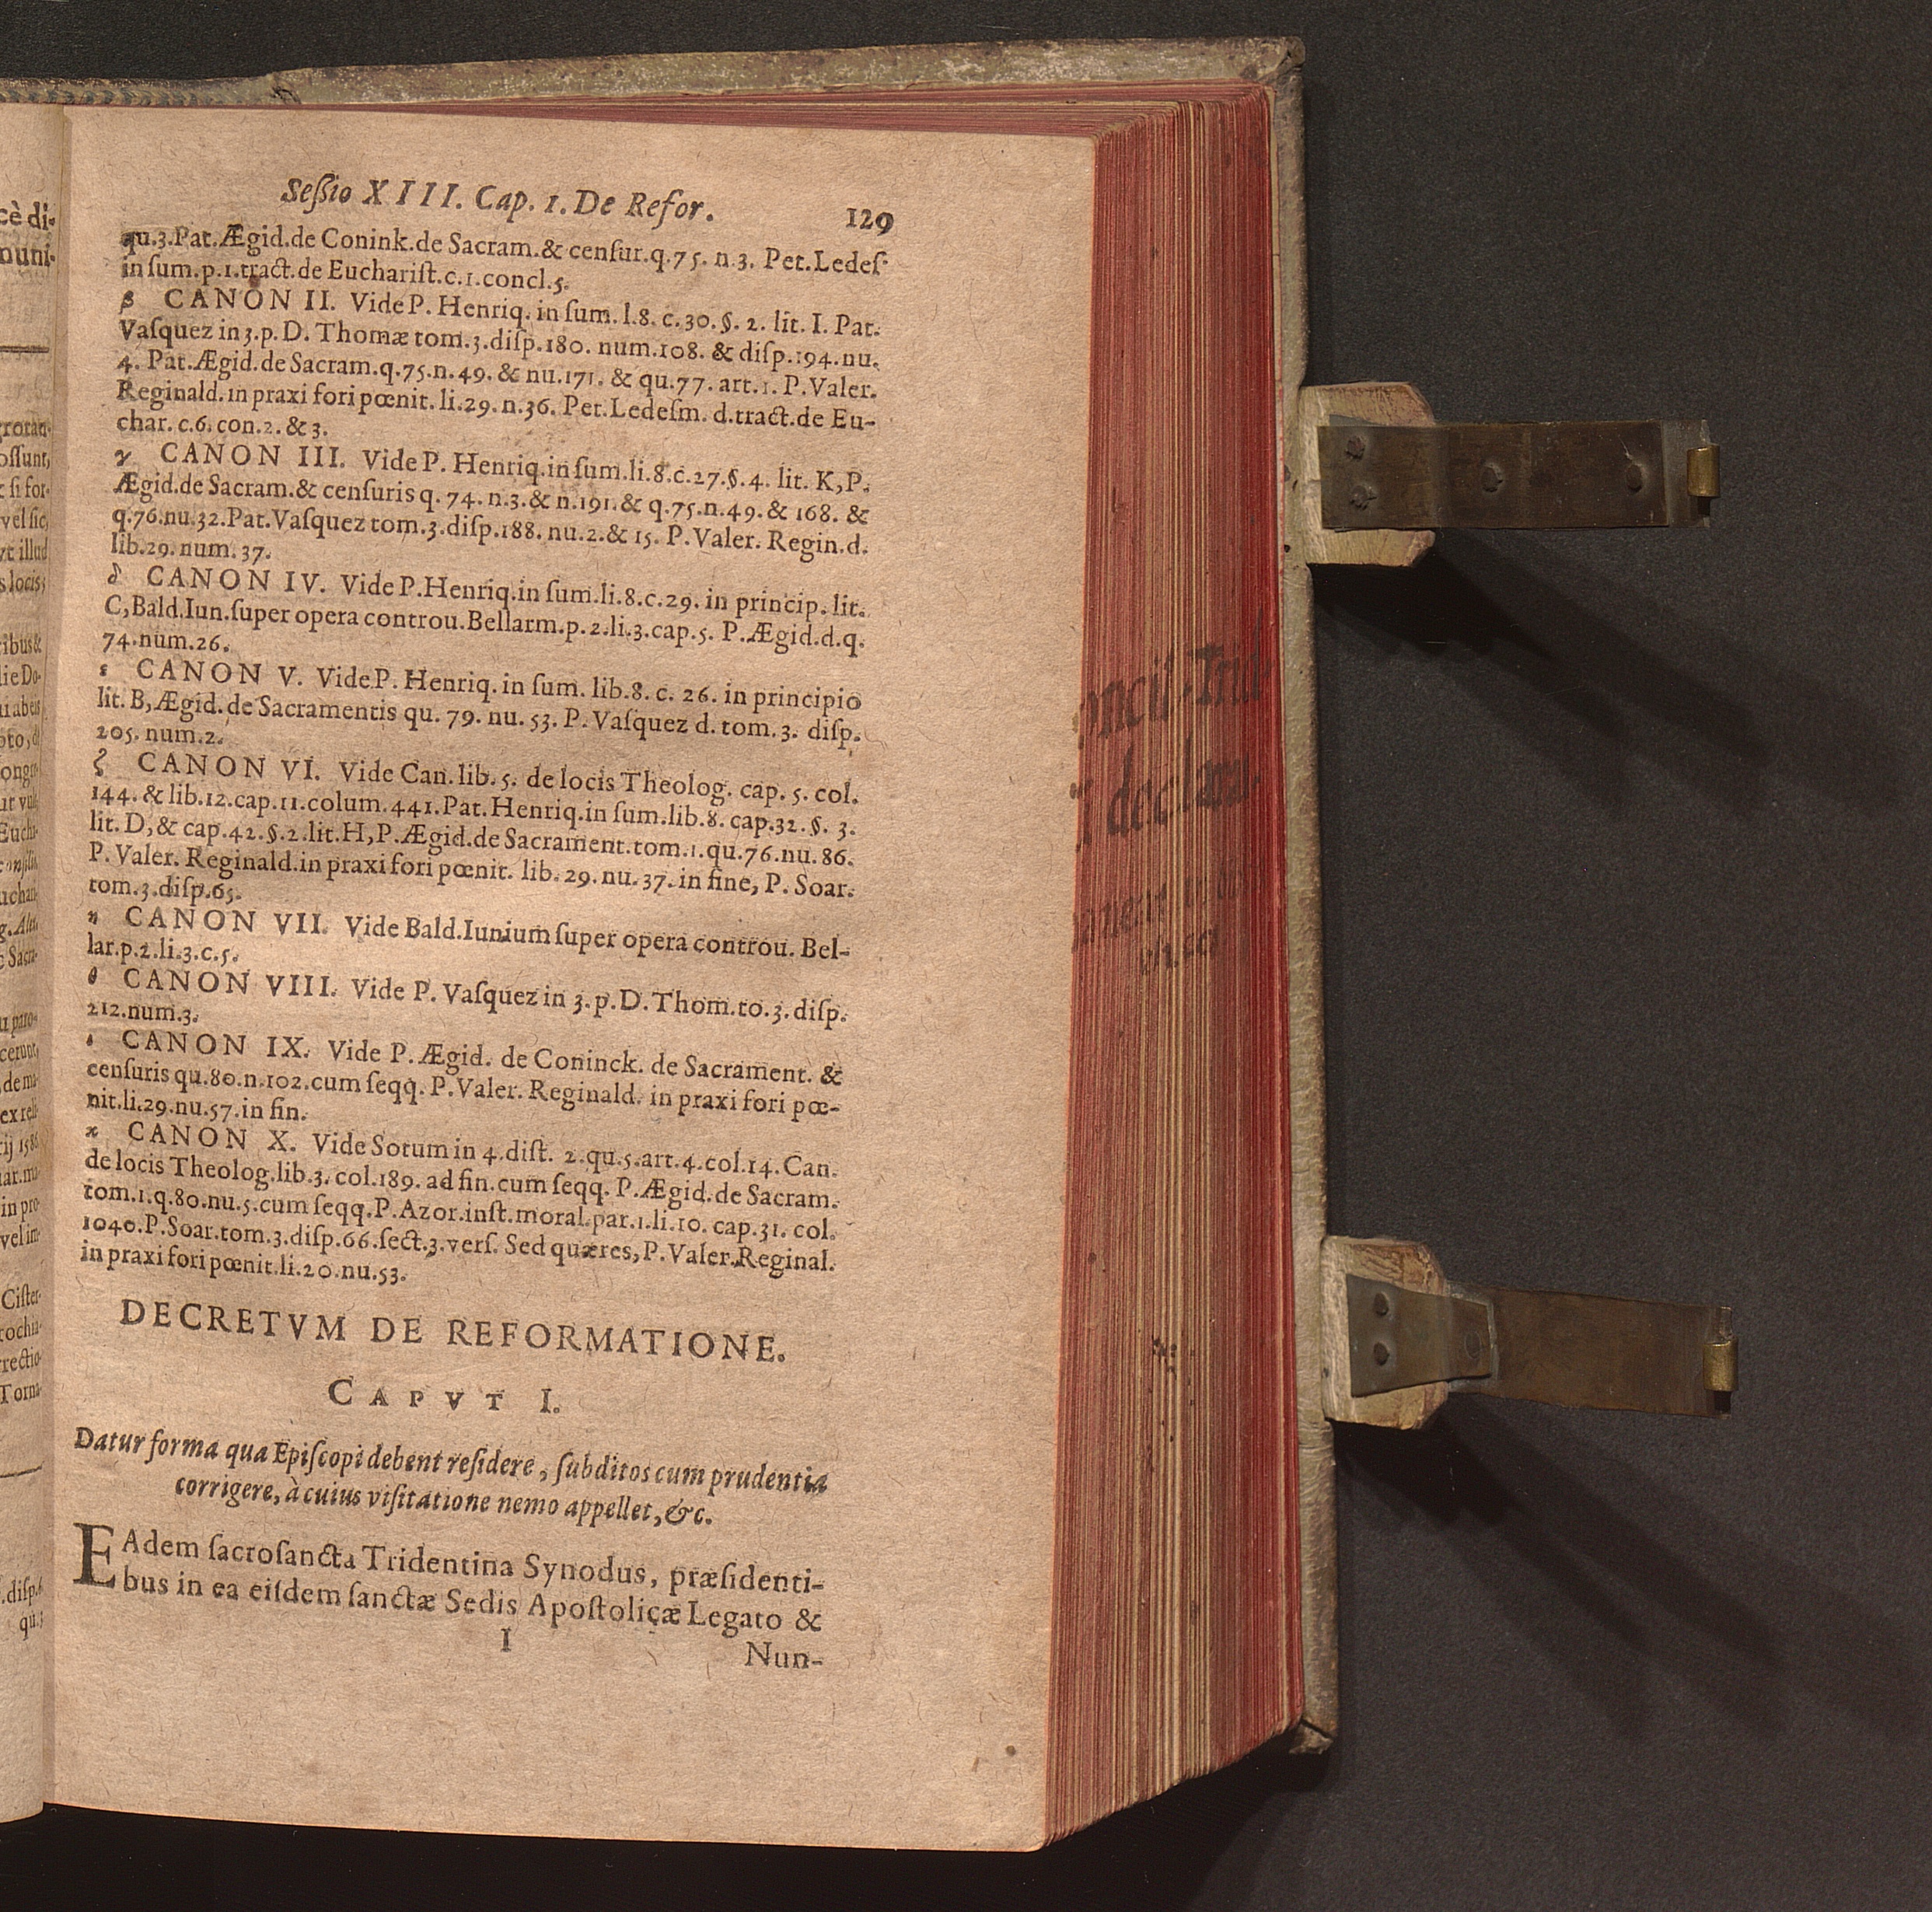 Seßio XIII. Cap. 1. De Refor. 129
qu.3.Pat.Ægid.de Conink.de Sacram.& cenſur.q.75. n.3. Pet.Ledeſ-
in ſum.p.1.tract.de Euchariſt.c.1.concl.5.
β CANON II. Vide P. Henriq. in ſum. l.8. c.30.§. 2. lit. I. Pat.
Vaſquez in 3.p. D. Thomæ tom.3.diſp.180. num.108. & diſp.194.nu.
4. Pat.Ægid.de Sacram.q.75.n.49. & nu.171. & qu.77. art.1. P.Valer.
Reginald.in praxi fori pœnit. li.29. n.36. Pet.Ledeſm. d.tract.de Eu-
char. c.6. con.2. & 3.
γ CANON III. Vide P. Henriq.in ſum.li.8.c.27.§.4. lit. K, P.
Ægid.de Sacram.& cenſuris q. 74. n.3.& n.191.& q.75.n.49.& 168. &
q.76.nu.32.Pat.Vaſquez tom.3.diſp.188. nu.2.& 15. P.Valer. Regin.d.
lib.29.num.37.
δ CANON IV. Vide P.Henriq.in ſum.li.8.c.29. in princip. lit.
C, Bald.Iun.ſuper opera controu.Bellarm.p.2.li.3.cap.5. P.Ægid.d.q.
74.num.26.
ε CANON V. Vide P. Henriq. in ſum. lib.8. c. 26. in principio
lit. B, Ægid. de Sacramentis qu. 79. nu. 53. P. Vaſquez d. tom. 3. diſp.
205. num.2.
ζ CANON VI. Vide Can. lib. 5. de locis Theolog. cap. 5. col.
144. & lib.12.cap.11.colum.441.Pat.Henriq.in ſum.lib.8. cap.32. §. 3.
lit. D, & cap.42.§.2.lit.H, P.Ægid.de Sacrament.tom.1.qu.76.nu.86.
P. Valer. Reginald.in praxi fori pœnit. lib. 29. nu.37. in fine, P. Soar.
tom.3.diſp.65.
η CANON VII. Vide Bald.Iunium ſuper opera controu. Bel-
lar.p.2.li.3.c.5.
θ CANON VIII. Vide P. Vaſquez in 3.p.D.Thom.to.3.diſp.
212.num.3.
ι CANON IX. Vide P. Ægid. de Coninck. de Sacrament. &
cenſuris qu.80.n.102.cum ſeqq. P.Valer. Reginald. in praxi fori pœ-
nit.li.29.nu.57.in fin.
κ CANON X. Vide Sotum in 4.diſt. 2.qu.5.art.4.col.14. Can.
de locis Theolog.lib.3. col.189. ad fin.cum ſeqq. P.Ægid.de Sacram.
tom.1.q.80.nu.5.cum ſeqq.P.Azor.inſt.moral.par.1.li.10. cap.31. col.
1040.P.Soar.tom.3.diſp.66.ſect.3.verſ. Sed quæres, P.Valer.Reginal.
in praxi fori pœnit.li.20.nu.53.
DECRETVM DE REFORMATIONE.
CAPVT I.
Datur forma qua Epiſcopi debent reſidere, ſubditos cum prudentia
corrigere, à cuius viſitatione nemo appellet, &c.
EAdem ſacroſancta Tridentina Synodus, præſidenti-
bus in ea eiſdem ſanctæ Sedis Apoſtolicæ Legato &
I Nun-